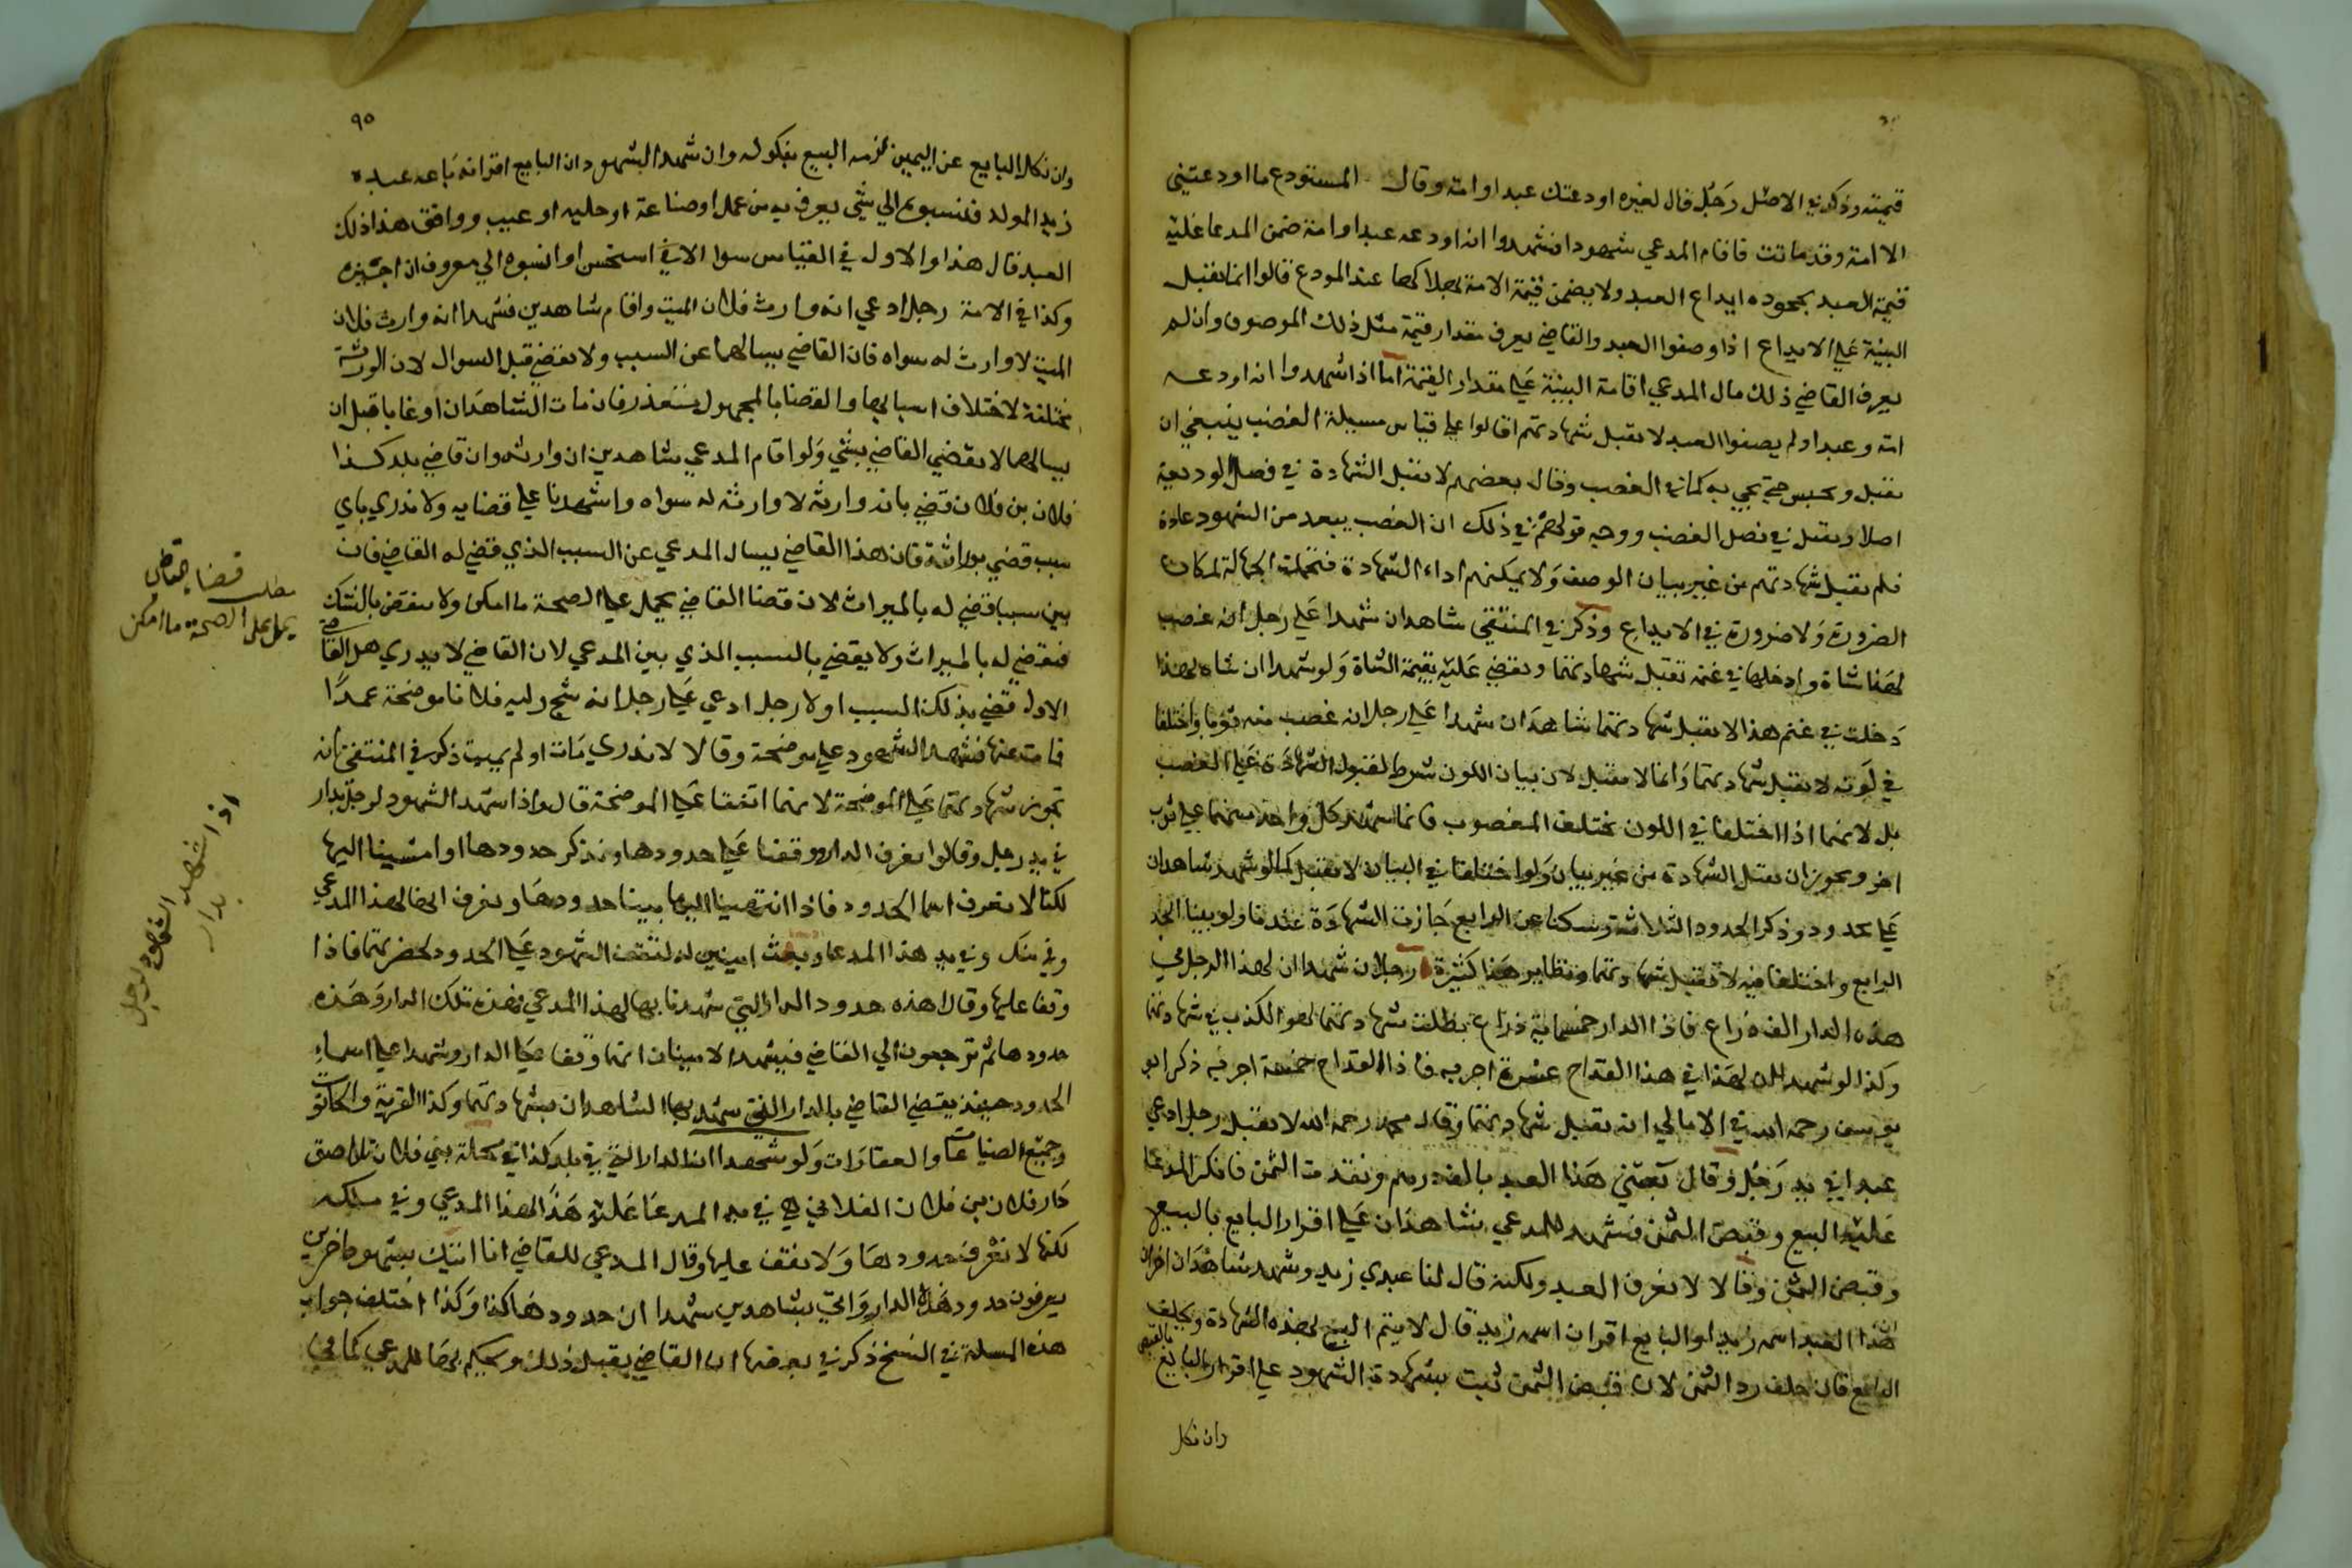 قيمته وذكر في الاصل رجل قال لغيره اودعتك عبدا وامة وقال المستودع ما اودعتني
الا امة وقد ماتت فاقام المدعي شهودا فشهدوا انه اودعه عبدا وامة ضمن المدعا عليه
قيمة العبد بجحوده ايداع العبد ولا يضمن قيمة الامة لهلاكها عند المودع قالوا انما تقبل
البينة علي الايداع اذا وصفوا العبد والقاضي يعرف مقدار قيمة مثل ذلك الموصوف وان لم
يعرف القاضي ذلك سال المدعي اقامة البينة علي مقدار القيمة اما اذا شهدوا انه اودعه
امة وعبدا ولم يصفوا العبد لا تقبل شهادتهم قالوا علي قياس مسيلة الغصب ينبغي ان
تقبل ويحبس حتي يجي به كما في الغصب وقال بعضهم لا تقبل الشهادة في فصل الوديعة
اصلا وتقبل في فصل الغصب ووجه قولهم في ذلك ان الغصب يبعد من الشهود عادة
فلم تقبل شهادتهم من غير بيان الوصف ولا يمكنهم اداء الشهادة فتحملت الجهالة لمكان
الضرورة ولا ضرورة في الايداع وذكر في المنتقي شاهدان شهدا علي رجل انه غصب
لهذا شاة وادخلها في غنمه تقبل شهادتهما ويقضي عليه بقيمة الشاة ولو شهدا ان شاة لهذا
دخلت في غنم هذا لا تقبل شهادتهما شاهدان شهدا علي رجل انه غصب منه ثوبا واختلفا
في لونه لا تقبل شهادتهما وانما لا تقبل لا ان بيان اللون شرط لقبول الشهادة علي الغصب
بل لانهما اذا اختلفا في اللون يختلف المغصوب فانما شهد كل واحد منهما علي ثوب
اخر ويجوز ان تقبل الشهادة من غير بيان ولو اختلفا في البيان لا تقبل كما لو شهد شاهدان
علي محدود وذكر الحدود الثلاثة وسكتا عن الرابع جازت الشهادة عندنا ولو بينا الحد
الرابع واختلفا فيه لا تقبل شهادتهما ونظاير هذا كثيرة رجلان شهدا ان لهذا الرجل في
هذه الدار الف ذراع فاذا الدار خمسماية ذراع بطلت شهادتهما لهو الكذب في شهادتهما
وكذا لو شهدا ان لهذا في هذا القداح عشرة اجربه فاذا القداح خمسة اجربه ذكر ابو
يوسف رحمه الله في الامالي انه تقبل شهادتهما وقال محمد رحمه الله لا تقبل رجل ادعي
عبدا في يد رجل وقال بعتني هذا العبد بالف درهم ونقدت الثمن فانكر المدعا
عليه البيع وقبض الثمن فشهد للمدعي شاهدان علي اقرار البايع بالبيع
وقبض الثمن وقالا لا نعرف العبد ولكنه قال لنا عبدي زيد وشهد شاهدان اخران
ان هذا العبد اسمه زيد او البايع اقر ان اسمه زيد قال لا يتم البيع بهذه الشهادة ويحلف
البايع فان حلف رد الثمن لان قبض الثمن ثبت بشهادة الشهود علي اقرار البايع بالقبض
وان نكل
٩٥
وان نكل البايع عن اليمين لزمه البيع بنكوله وان شهد الشهود ان البايع اقر انه باعه عبده
زيد المولد فنسبوه الي شي يعرف به من عمل او صناعة او حلية او عيب ووافق هذا ذلك
العبد قال هذا والاول في القياس سوا الا اني استحسن اذا نسبوه الي معروف ان اجيزه
وكذا في الامة رجل ادعي انه وارث فلان الميت واقام شاهدين فشهدا انه وارث فلان
الميت لا وارث له سواه فان القاضي يسالهما عن السبب ولا يقضي قبل السوال لان الورثة
مختلفة لاختلاف اسبابها والقضا بالمجهول متعذر فان مات الشاهدان او غابا قبل ان
يسالهما لا يقضي القاضي بشي ولو اقام المدعي شاهدين انه وارثه وان قاضي بلد كذا
فلان بن فلان قضي بانه وارثه لا وارث له سواه واشهدنا علي قضايه ولا ندري باي
سبب قضي بوراثته فان هذا القاضي يسال المدعي عن السبب الذي قضي له القاضي فان
بين سببا قضي له بالميراث لان قضا القاضي يحمل علي الصحة ما امكن ولا ينقض بالشك
فيقضي له بالميراث ولا يقضي بالسبب الذي بين المدعي لان القاضي لا يدري هل القاضي
الاول قضي بذلك السبب او لا رجل ادعي علي رجل انه شج وليه فلانا موضحة عمدا
فمات عنها فشهد الشهود علي موضحة وقالا لا ندري مات او لم يمت ذكر في المنتقي انه
تجوز شهادتهما علي الموضحة لانهما اتفقا علي الموضحة قال واذا شهد الشهود لرجل بدار
في يد رجل وقالوا نعرف الدار ووقفنا علي حدودها ونذكر حدودها اذا مشينا اليها
لكنا لا نعرف اسما الحدود فاذا انتهينا اليها بينا حدودها ونعرف انها لهذا المدعي
وفي ملكه وفي يد هذا المدعا وبعث امينين له لتقف الشهود علي الحدود بحضرتهما فاذا
وقفا عليها وقالا هذه حدود الدار التي شهدنا بها لهذا المدعي فهذه تلك الدار وهذه
حدودها ثم ترجعون الي القاضي فيشهد الامينان انهما وقفا علي الدار وشهدا علي اسماء
الحدود حينئذ يقضي القاضي بالدار التي شهد بها الشاهدان بشهادتهما وكذا القرية والحانوت
وجميع الضياعات والعقارات ولو شهدا ان الدار التي في بلد كذا في محلة بني فلان تلاصق
دار فلان بن فلان الفلاني هي في يد المدعا عليه هذا لهذا المدعي وفي ملكه
لكنها لا نعرف حدودها ولا نقف عليها وقال المدعي للقاضي انا اتيك بشهود اخرين
يعرفون حدود هذه الدار واتي بشاهدين شهدا ان حدودها كذا وكذا اختلف جواب
هذه المسيلة في النسخ ذكر في بعضها ان القاضي يقبل ذلك ويحكم بها للمدعي كما في
مطلب قضا القاضي
يحمل على الصحة ما امكن
اذا شهد الشهود لرجل
بدار